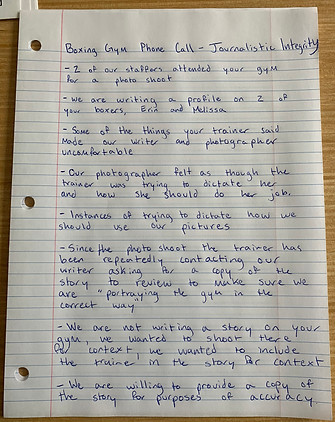 Boxing Gym Phone Call - Journalistic Integrity
- 2 of our staffers attended your gym
for a photo shoot
- We are writing a profile on 2 of
your boxers, Erin and Melissa
- Some of the things your trainer said
made our writer and photographer
uncomfortable
- Our photographer felt as though the
trainer was trying to dictate her
and how she should do her job.
- Instances of trying to dictate how we
should use our pictures
- Since the photo shoot the trainer has
been repeatedly contacting our
writer asking for a copy of the
story to review to make sure we
are "portraying the gym in the
correct way"
- We are not writing a story on your
gym, we wanted to shoot there
for context, we wanted to include
the trainer in the story for context
- We are willing to provide a copy of
the story for purposes of accuracy